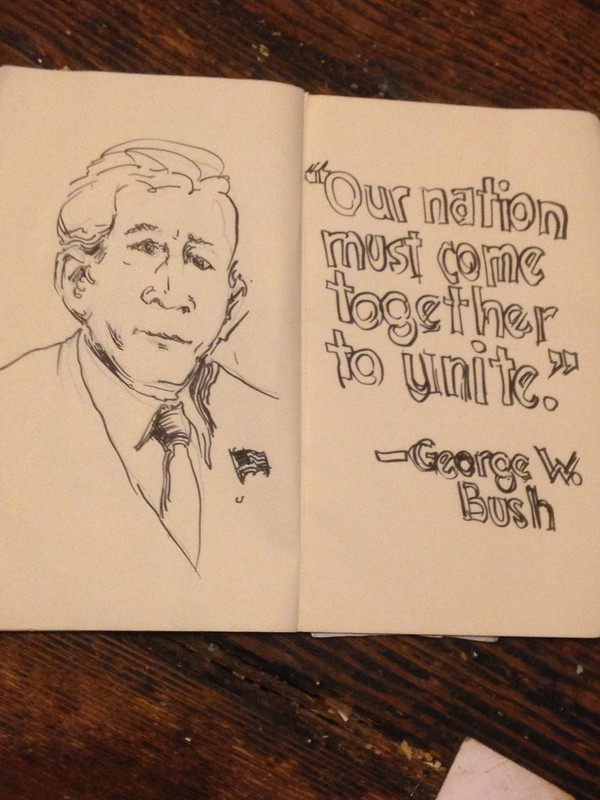 “Our nation
must come
together
to unite.”
—George W.
Bush